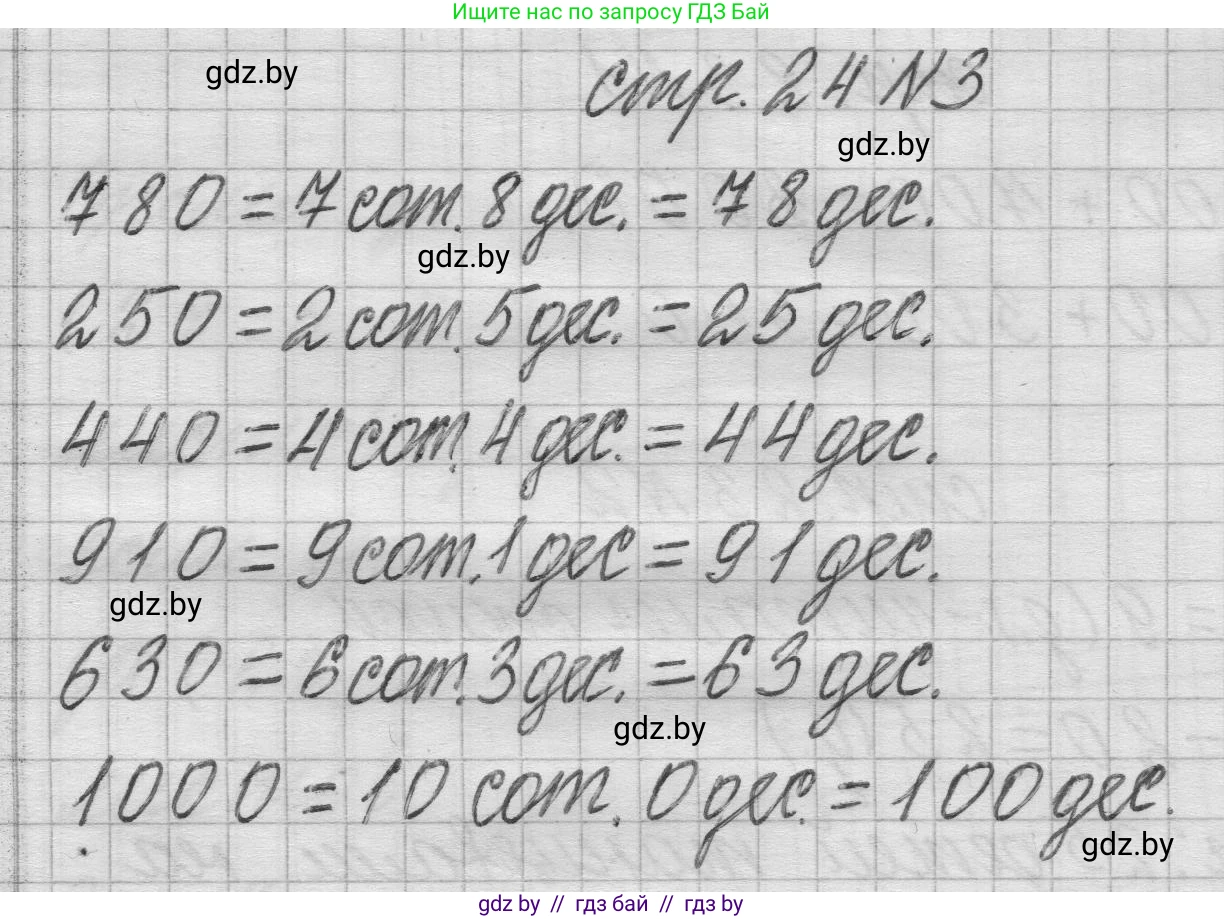 Ищите нас по запросу ГДЗ Бай
gdz.by
стр. 24 N3
gdz.by
780 = 7 сот. 8 дес. = 78 дес.
gdz.by
250 = 2 сот. 5 дес. = 25 дес.
440 = 4 сот. 4 дес. = 44 дес.
910 = 9 сот. 1 дес = 91 дес.
gdz.by
630 = 6 сот. 3 дес. = 63 дес.
gdz.by
1000 = 10 сот. 0 дес. = 100 дес.
gdz.by
gdz by // гдз бай // гдз by